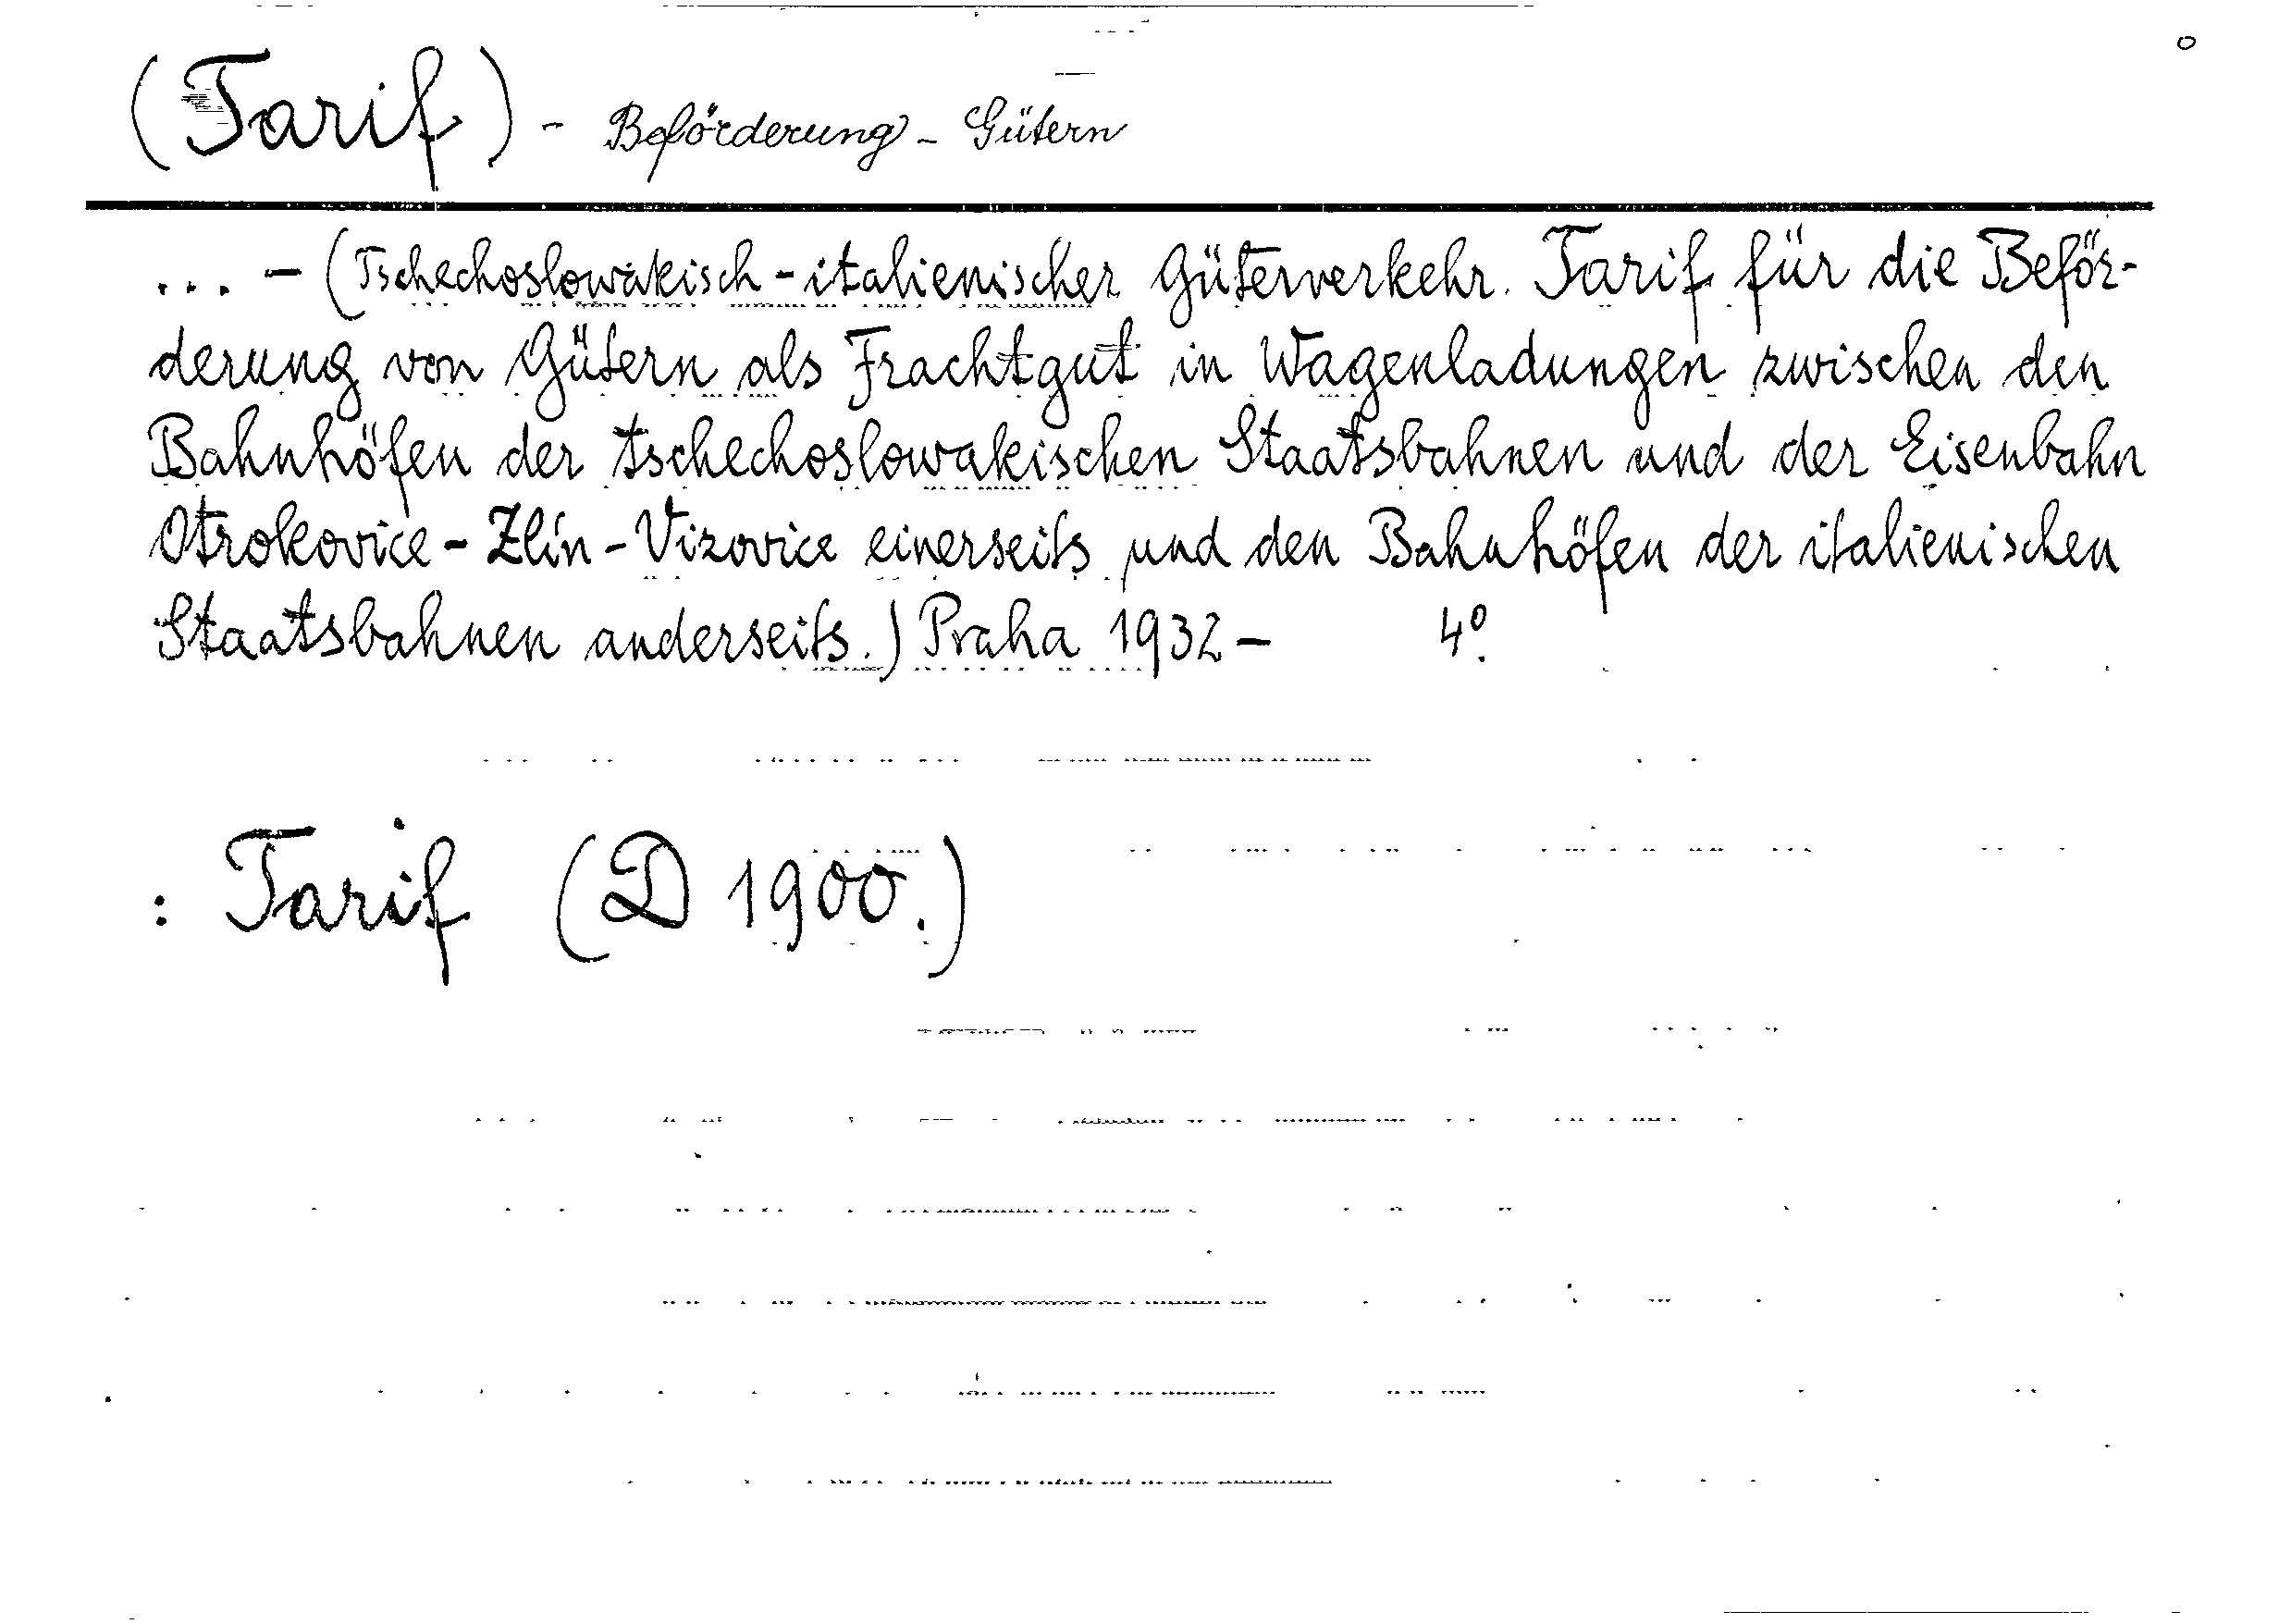 (Tarif) - Beförderung - Gütern
... - (Tschechoslowakisch - italienischer Güterverkehr. Tarif für die Beför-
derung von Gütern als Frachtgut in Wagenladungen zwischen den
Bahnhöfen der tschechoslowakischen Staatsbahnen und der Eisenbahn
Otrokovice - Zlín - Vizovice einerseits und den Bahnhöfen der italienischen
Staatsbahnen anderseits.) Praha 1932 - 4º.
: Tarif (D 1900.)